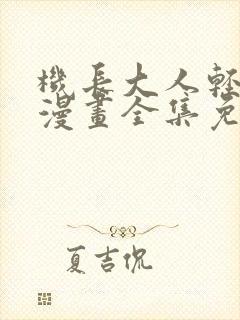 機長大人輕
漫畫全集免
夏吉侃